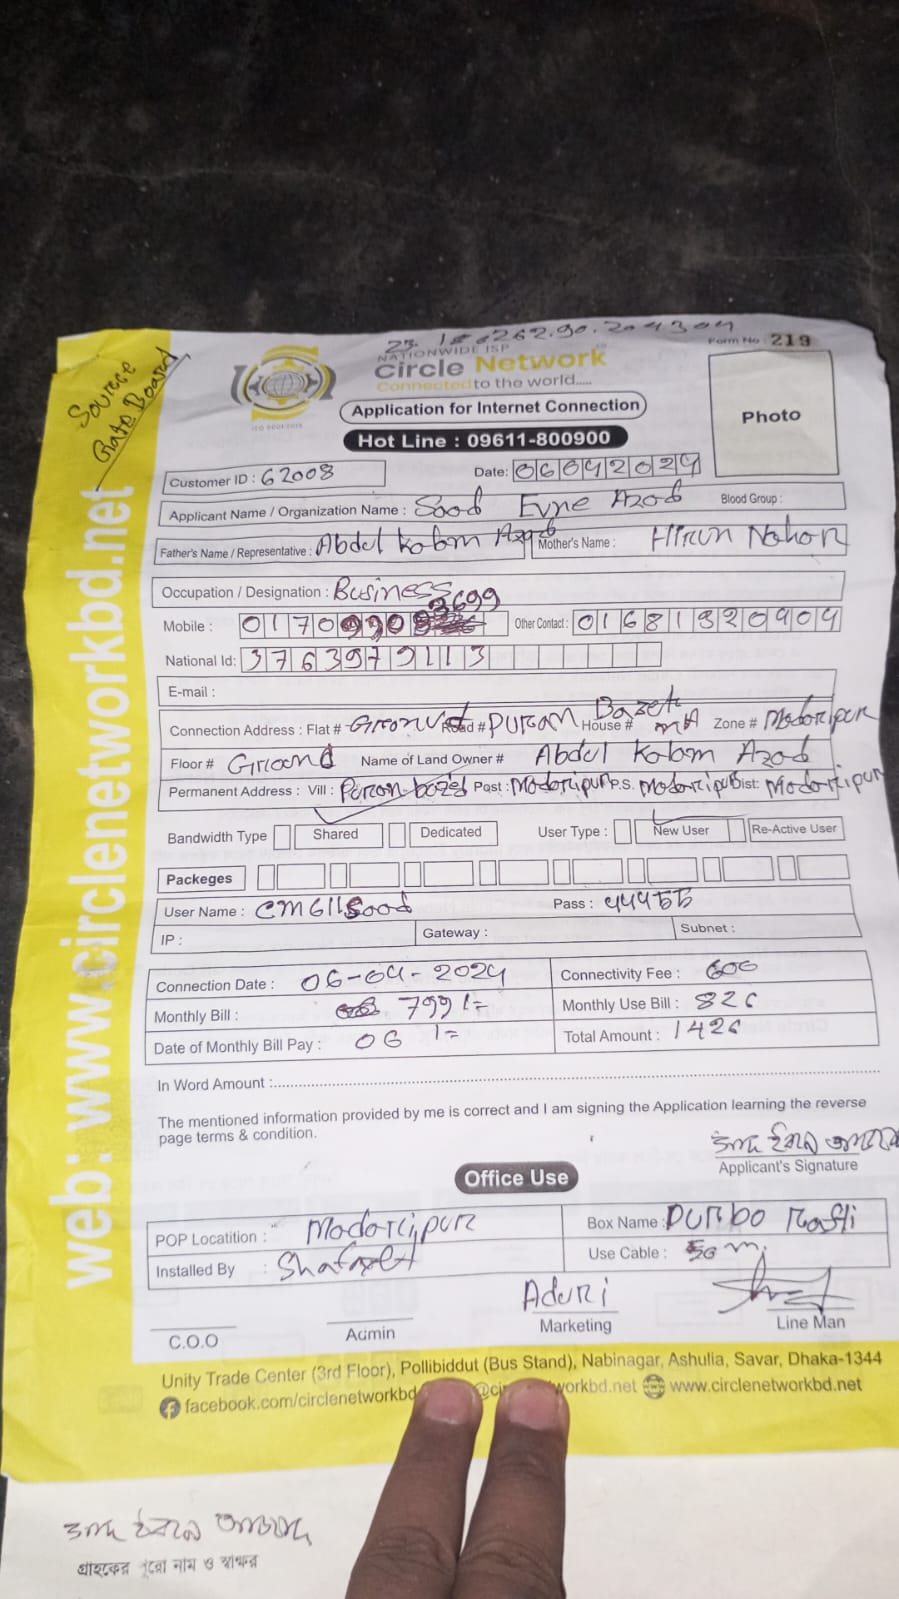 Source
Rate Board
Form No : 219
NATIONWIDE ISP
Circle Network
Connected to the world.....
Application for Internet Connection
Hot Line : 09611-800900
Photo
ISO 9001:2015
Customer ID : 62008
Date: 06042024
Applicant Name / Organization Name : Saad Evne Azad Blood Group :
Father's Name / Representative : Abdul Kalam Azad Mother's Name : Hirun Nahar
Occupation / Designation : Business
3699
Mobile : 0170990 Other Contact : 01681820904
National Id: 3763979113
E-mail :
Connection Address : Flat # Ground Road # Puran Bazar House # Zone # Madaripur
Floor # Ground Name of Land Owner # Abdul Kalam Azad
Permanent Address : Vill : Puran bazar Post : Madaripur P.S. Madaripur Dist: Madaripur
Bandwidth Type Shared Dedicated User Type : New User Re-Active User
Packeges
User Name : Pass : 444555
IP : Gateway : Subnet :
Connection Date : 06-04-2024 Connectivity Fee : 600
Monthly Bill : 799/= Monthly Use Bill : 826
Date of Monthly Bill Pay : 06 /= Total Amount : 1426
In Word Amount :
The mentioned information provided by me is correct and I am signing the Application learning the reverse
page terms & condition.
সাদ ইবনে আজাদ
Applicant's Signature
Office Use
POP Locatition : Madaripur Box Name : Rafi
Installed By : Use Cable : 50 m.
Aduri
C.O.O Admin Marketing Line Man
Unity Trade Center (3rd Floor), Pollibiddut (Bus Stand), Nabinagar, Ashulia, Savar, Dhaka-1344
facebook.com/circlenetworkbd workbd.net www.circlenetworkbd.net
web: www.circlenetworkbd.net
সাদ ইবনে আজাদ
গ্রাহকের পুরো নাম ও স্বাক্ষর